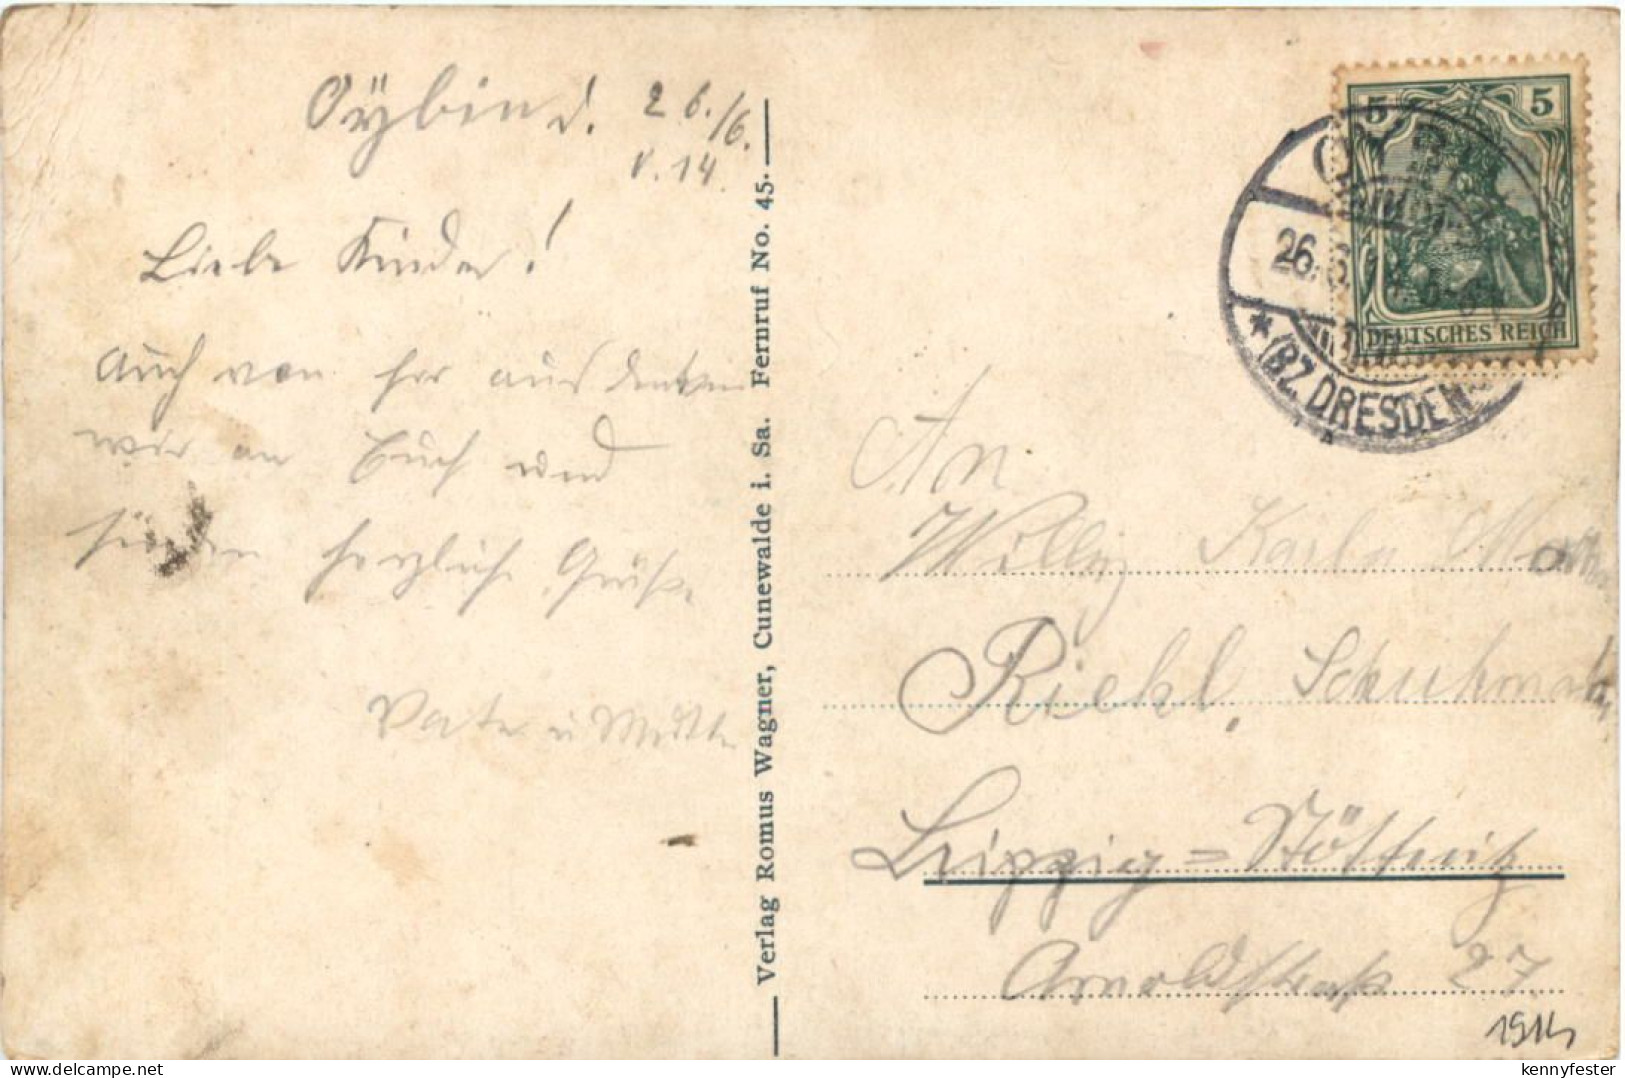 Oÿbin d. 26./6.
14.
Liebe Kinder!
Auch von hir aus denken
wir an Euch und
senden herzliche Grüße
Vater u Mutter
Verlag Romus Wagner, Cunewalde i. Sa. Fernruf No. 45.
5 5
DEUTSCHES REICH
OYBIN
26. 6.
* (BZ. DRESDEN)
An
Willy Karla
Riehl, Schuhma
Leipzig=Stötteritz
Arnoldstraße 27
1914
kennyfester